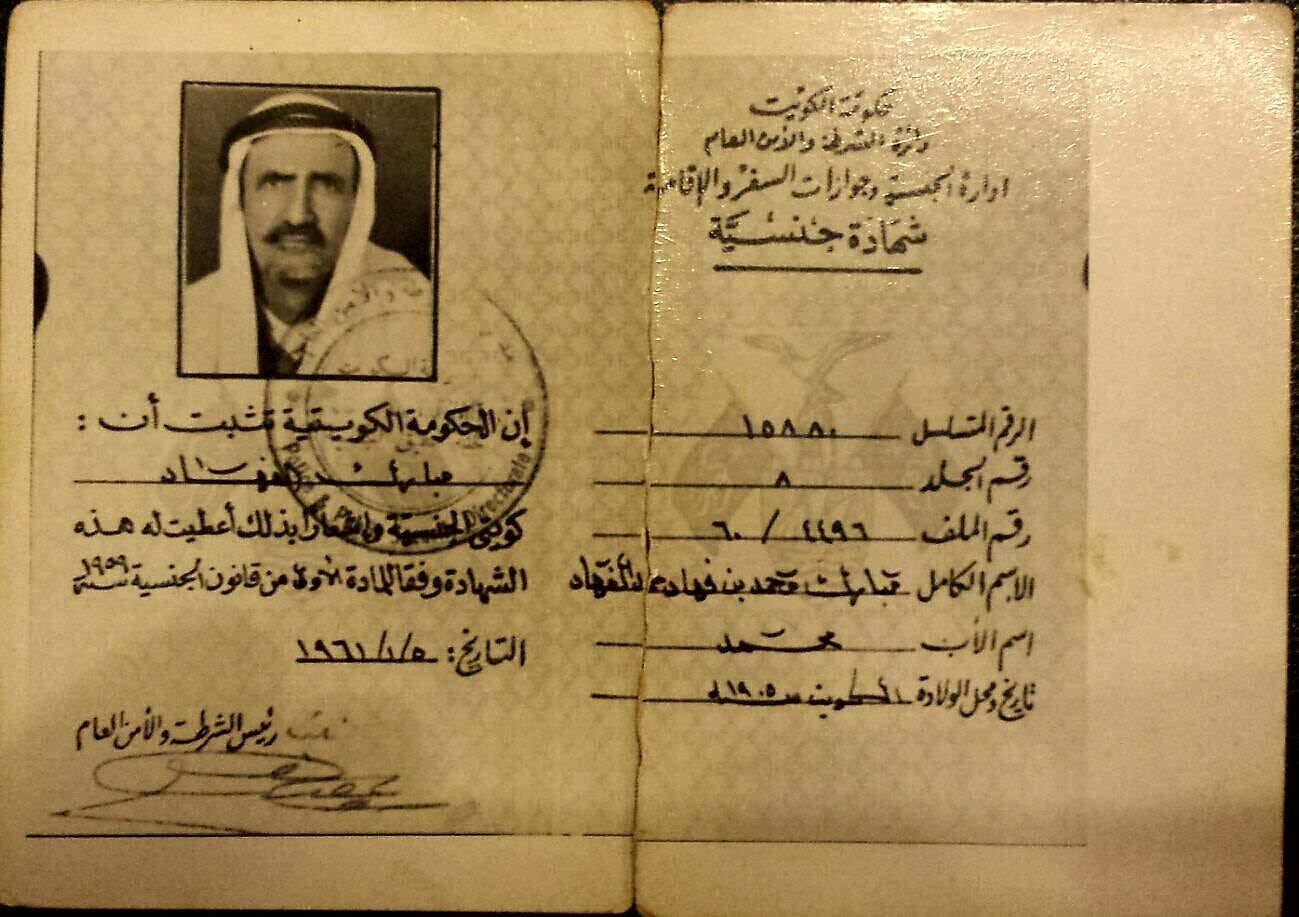 حكومة الكويت
دائرة الشرطة والأمن العام
ادارة الجنسية وجوازات السفر والإقامة
شهادة جنسيّة
الرقم المتسلسل ١٥٨٨٠
رقم المجلد ٨
رقم الملف ٤٤٩٦ / ٦٠
الاسم الكامل مبارك محمد بن فهاد الفهاد
اسم الأب محمد
تاريخ ومحل الولادة الكويت سنة ١٩٠٥
إن الحكومة الكويتية تثبت أن :
مبارك الفهاد
كويتي الجنسية وإشعارا بذلك أعطيت له هذه
الشهادة وفقا للمادة الأولى من قانون الجنسية سنة ١٩٥٩
التاريخ : ١٩٦١/١/٥
رئيس الشرطة والأمن العام
Directorate